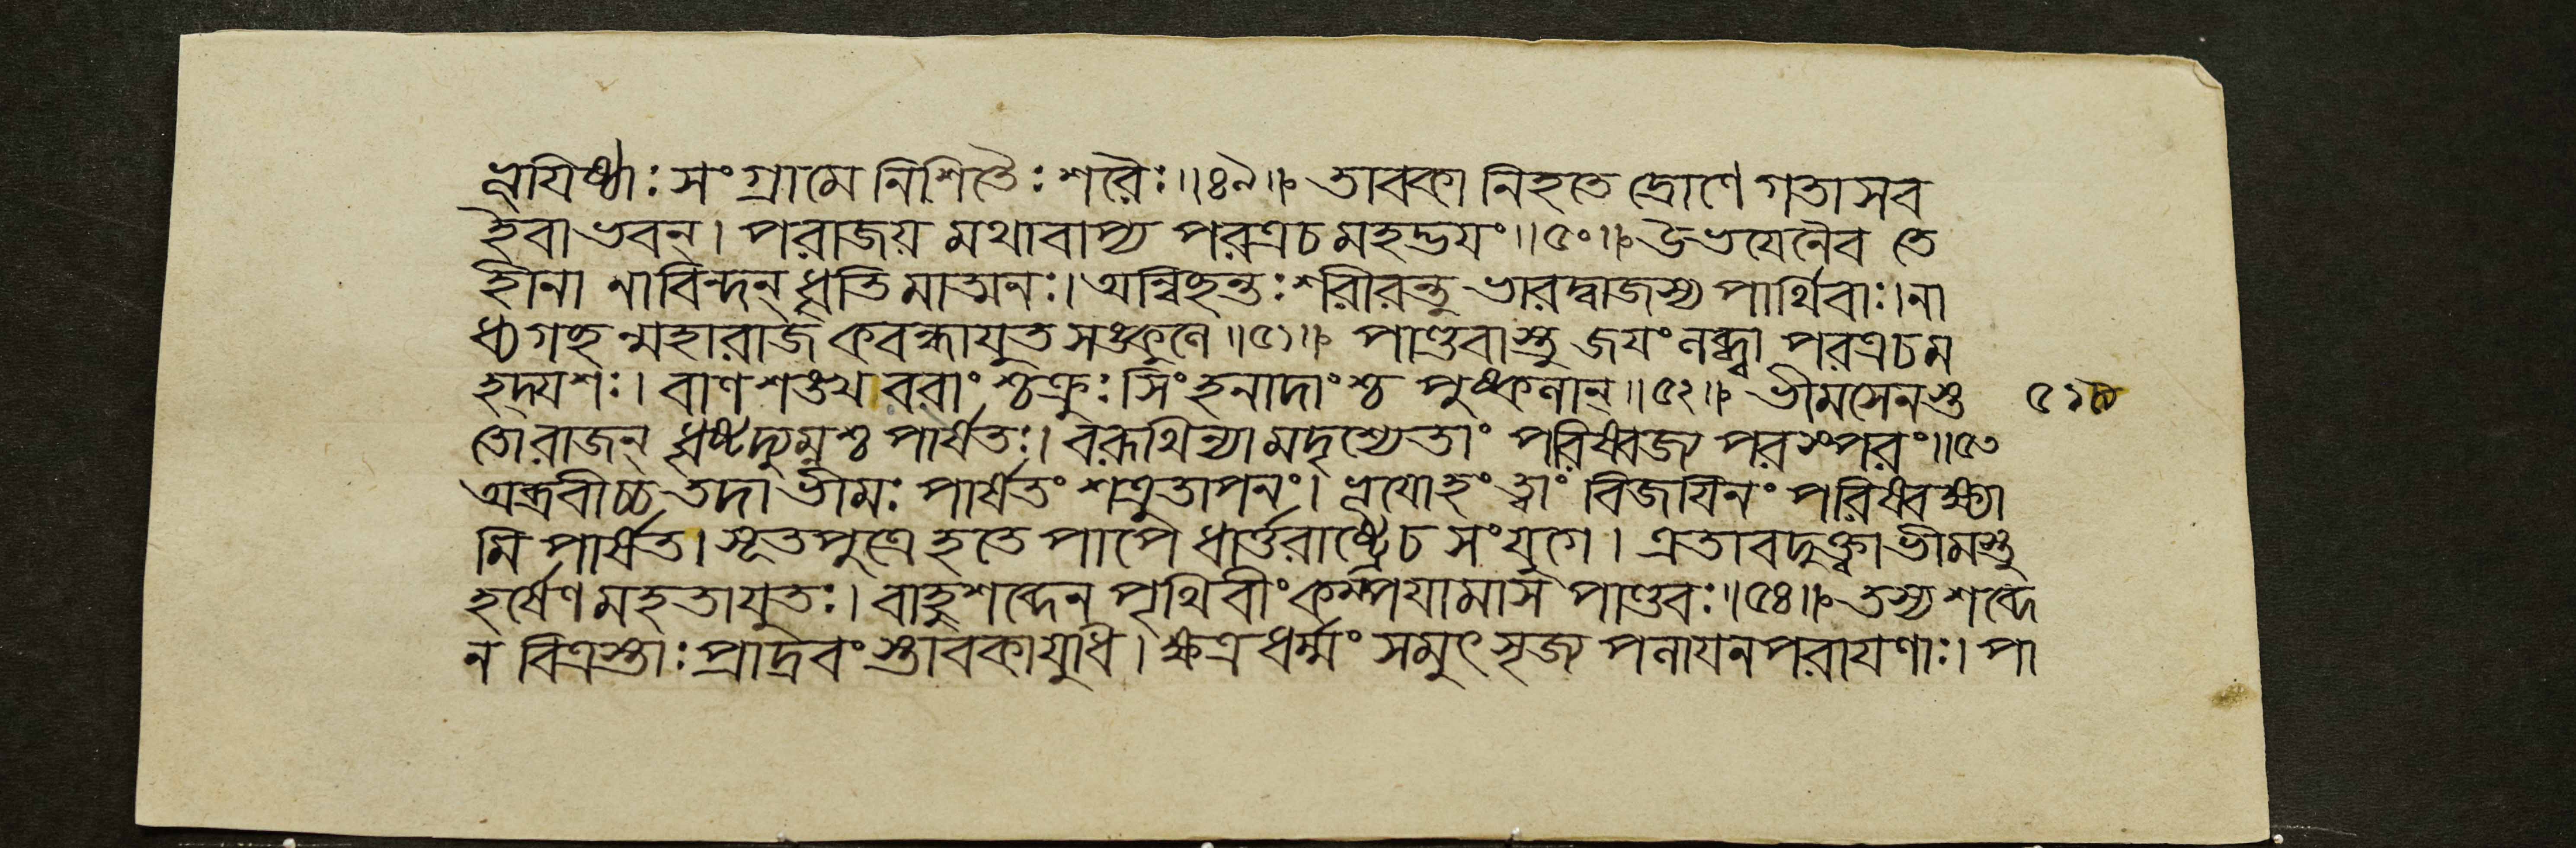 ভূযিষ্ঠাঃ সংগ্রামে নিশিতৈঃ শরৈঃ॥৪৯॥ তাবকা নিহতে দ্রোণে গতাসব
ইবাভবন্। পরাজয় মথাবাপ্য পরত্রচমহদ্ভযং॥৫০॥ উভযেনৈব তে
হীনা নাবিন্দন্ ধৃতি মাত্মনঃ।অন্বিছন্তঃ শরীরন্তু ভারদ্বাজস্য পার্থিবাঃ।না
ধ্যগছন্মহারাজ কবন্ধাযুত সঙ্কুলে॥৫১॥ পাণ্ডবাস্তু জযং লব্ধ্বা পরত্রচম
হদ্যশঃ। বাণ শঙ্খ বরাংশ্চক্রুঃ সিংহনাদাংশ্চ পুষ্কলান্॥৫২॥ ভীমসেনস্তু
তো রাজন্ ধৃষ্টদ্যুম্নশ্চ পার্ষতঃ। বরূথিন্যামদৃশ্যেতাং পরিষ্বজ্য পরস্পরং॥৫৩
অব্রবীচ্চ তদা ভীমঃ পার্ষতং শত্রুতাপনং। ভূযোহং ত্বাং বিজযিনং পরিষ্বক্ষ্যা
মি পার্ষত। সূতপুত্রে হতে পাপে ধার্ত্তরাষ্ট্রেচ সংযুগে। এতাবদুক্ত্বা ভীমস্তু
হর্ষেণ মহতাযুতঃ। বাহুশব্দেন পৃথিবীং কম্পযামাস পাণ্ডবঃ॥৫৪॥ তস্য শব্দে
ন বিত্রস্তাঃ প্রাদ্রবংস্তাবকাযুধি। ক্ষত্রধর্ম্মং সমুৎসৃজ্য পলাযনপরাযণাঃ। পা